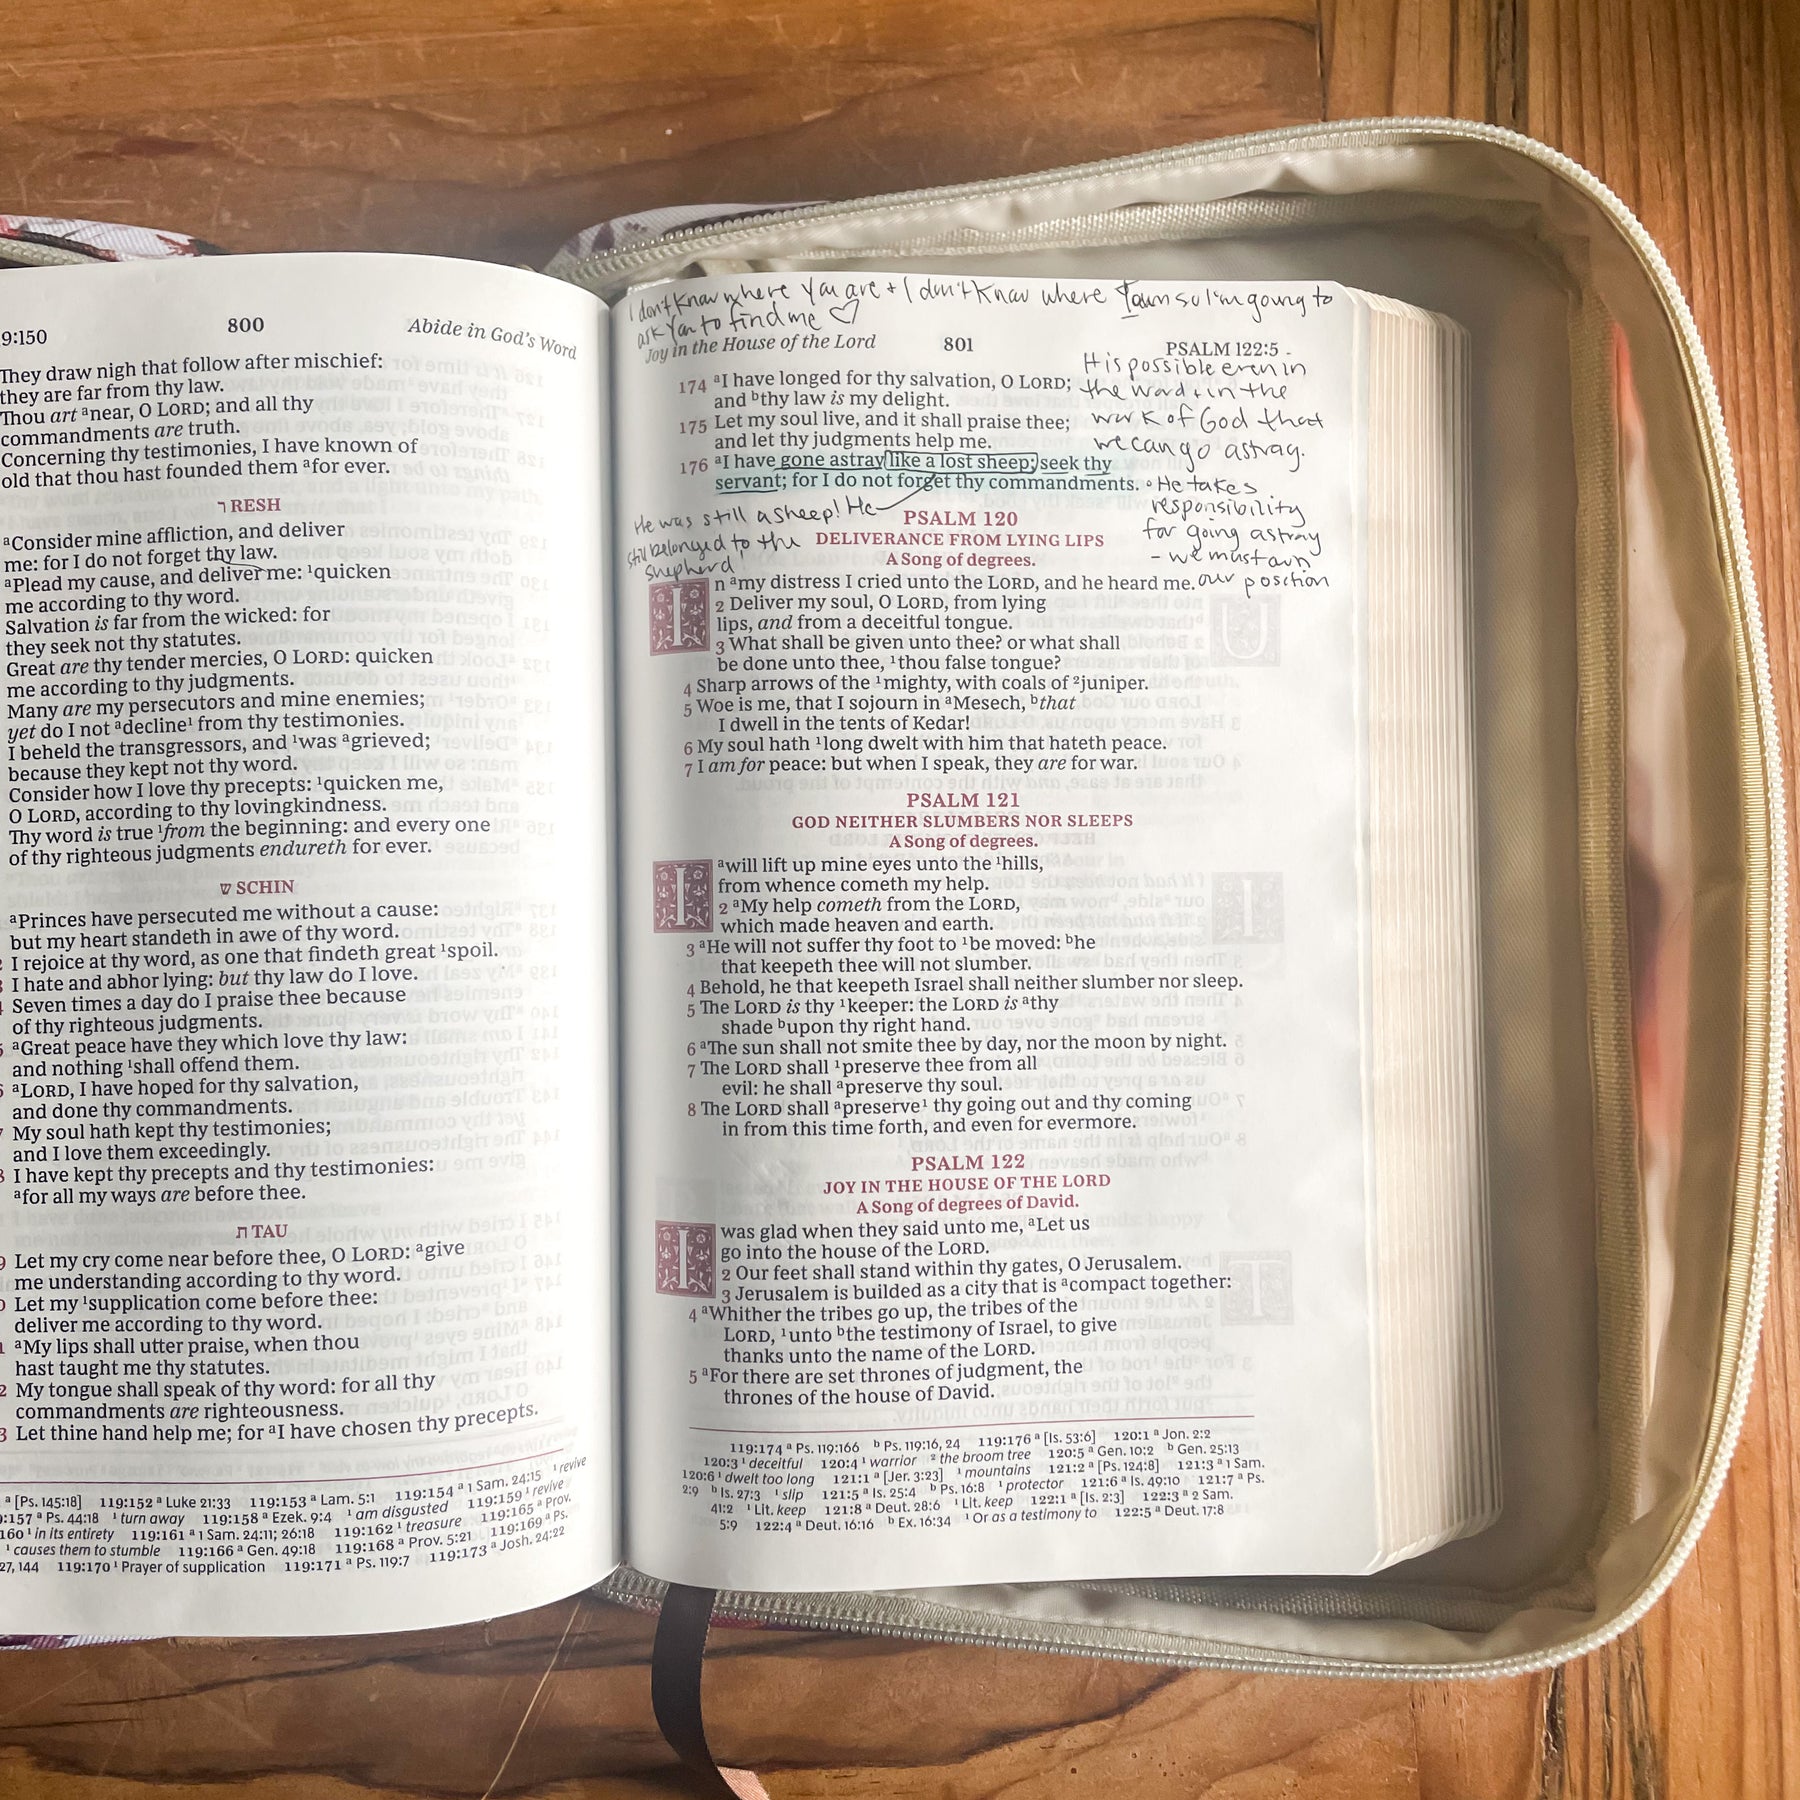 9:150 800 Abide in God's Word
They draw nigh that follow after mischief:
they are far from thy law.
Thou art ᵃnear, O LORD; and all thy
commandments are truth.
Concerning thy testimonies, I have known of
old that thou hast founded them ᵃfor ever.
ר RESH
ᵃConsider mine affliction, and deliver
me: for I do not forget thy law.
ᵃPlead my cause, and deliver me: ¹quicken
me according to thy word.
Salvation is far from the wicked: for
they seek not thy statutes.
Great are thy tender mercies, O LORD: quicken
me according to thy judgments.
Many are my persecutors and mine enemies;
yet do I not ᵃdecline¹ from thy testimonies.
I beheld the transgressors, and ¹was ᵃgrieved;
because they kept not thy word.
Consider how I love thy precepts: ¹quicken me,
O LORD, according to thy lovingkindness.
Thy word is true ¹from the beginning: and every one
of thy righteous judgments endureth for ever.
ש SCHIN
ᵃPrinces have persecuted me without a cause:
but my heart standeth in awe of thy word.
2 I rejoice at thy word, as one that findeth great ¹spoil.
3 I hate and abhor lying: but thy law do I love.
4 Seven times a day do I praise thee because
of thy righteous judgments.
5 ᵃGreat peace have they which love thy law:
and nothing ¹shall offend them.
6 ᵃLORD, I have hoped for thy salvation,
and done thy commandments.
7 My soul hath kept thy testimonies;
and I love them exceedingly.
8 I have kept thy precepts and thy testimonies:
ᵃfor all my ways are before thee.
ת TAU
9 Let my cry come near before thee, O LORD: ᵃgive
me understanding according to thy word.
0 Let my ¹supplication come before thee:
deliver me according to thy word.
1 ᵃMy lips shall utter praise, when thou
hast taught me thy statutes.
2 My tongue shall speak of thy word: for all thy
commandments are righteousness.
3 Let thine hand help me; for ᵃI have chosen thy precepts.
ᵃ [Ps. 145:18] 119:152 ᵃ Luke 21:33 119:153 ᵃ Lam. 5:1 119:154 ᵃ 1 Sam. 24:15 ¹ revive
9:157 ᵃ Ps. 44:18 ¹ turn away 119:158 ᵃ Ezek. 9:4 ¹ am disgusted 119:159 ¹ revive
160 ¹ in its entirety 119:161 ᵃ 1 Sam. 24:11; 26:18 119:162 ¹ treasure 119:165 ᵃ Prov.
¹ causes them to stumble 119:166 ᵃ Gen. 49:18 119:168 ᵃ Prov. 5:21 119:169 ᵃ Ps.
27, 144 119:170 ¹ Prayer of supplication 119:171 ᵃ Ps. 119:7 119:173 ᵃ Josh. 24:22
I don't know where You are + I don't know where I am so I'm going to
ask You to find me ♡
Joy in the House of the Lord 801 PSALM 122:5
It is possible even in
the word + in the
work of God that
we can go astray.
• He takes
responsibility
for going astray
- we must own
our position
174 ᵃI have longed for thy salvation, O LORD;
and ᵇthy law is my delight.
175 Let my soul live, and it shall praise thee;
and let thy judgments help me.
176 ᵃI have gone astray like a lost sheep; seek thy
servant; for I do not forget thy commandments.
He was still a sheep! He
still belonged to the
shepherd!
PSALM 120
DELIVERANCE FROM LYING LIPS
A Song of degrees.
In ᵃmy distress I cried unto the LORD, and he heard me.
2 Deliver my soul, O LORD, from lying
lips, and from a deceitful tongue.
3 What shall be given unto thee? or what shall
be done unto thee, ¹thou false tongue?
4 Sharp arrows of the ¹mighty, with coals of ²juniper.
5 Woe is me, that I sojourn in ᵃMesech, ᵇthat
I dwell in the tents of Kedar!
6 My soul hath ¹long dwelt with him that hateth peace.
7 I am for peace: but when I speak, they are for war.
PSALM 121
GOD NEITHER SLUMBERS NOR SLEEPS
A Song of degrees.
I ᵃwill lift up mine eyes unto the ¹hills,
from whence cometh my help.
2 ᵃMy help cometh from the LORD,
which made heaven and earth.
3 ᵃHe will not suffer thy foot to ¹be moved: ᵇhe
that keepeth thee will not slumber.
4 Behold, he that keepeth Israel shall neither slumber nor sleep.
5 The LORD is thy ¹keeper: the LORD is ᵃthy
shade ᵇupon thy right hand.
6 ᵃThe sun shall not smite thee by day, nor the moon by night.
7 The LORD shall ¹preserve thee from all
evil: he shall ᵃpreserve thy soul.
8 The LORD shall ᵃpreserve¹ thy going out and thy coming
in from this time forth, and even for evermore.
PSALM 122
JOY IN THE HOUSE OF THE LORD
A Song of degrees of David.
I was glad when they said unto me, ᵃLet us
go into the house of the LORD.
2 Our feet shall stand within thy gates, O Jerusalem.
3 Jerusalem is builded as a city that is ᵃcompact together:
4 ᵃWhither the tribes go up, the tribes of the
LORD, ¹unto ᵇthe testimony of Israel, to give
thanks unto the name of the LORD.
5 ᵃFor there are set thrones of judgment, the
thrones of the house of David.
119:174 ᵃ Ps. 119:166 ᵇ Ps. 119:16, 24 119:176 ᵃ [Is. 53:6] 120:1 ᵃ Jon. 2:2
120:3 ¹ deceitful 120:4 ¹ warrior ² the broom tree 120:5 ᵃ Gen. 10:2 ᵇ Gen. 25:13
120:6 ¹ dwelt too long 121:1 ᵃ [Jer. 3:23] ¹ mountains 121:2 ᵃ [Ps. 124:8] 121:3 ᵃ 1 Sam.
2:9 ᵇ Is. 27:3 ¹ slip 121:5 ᵃ Is. 25:4 ᵇ Ps. 16:8 ¹ protector 121:6 ᵃ Is. 49:10 121:7 ᵃ Ps.
41:2 ¹ Lit. keep 121:8 ᵃ Deut. 28:6 ¹ Lit. keep 122:1 ᵃ [Is. 2:3] 122:3 ᵃ 2 Sam.
5:9 122:4 ᵃ Deut. 16:16 ᵇ Ex. 16:34 ¹ Or as a testimony to 122:5 ᵃ Deut. 17:8